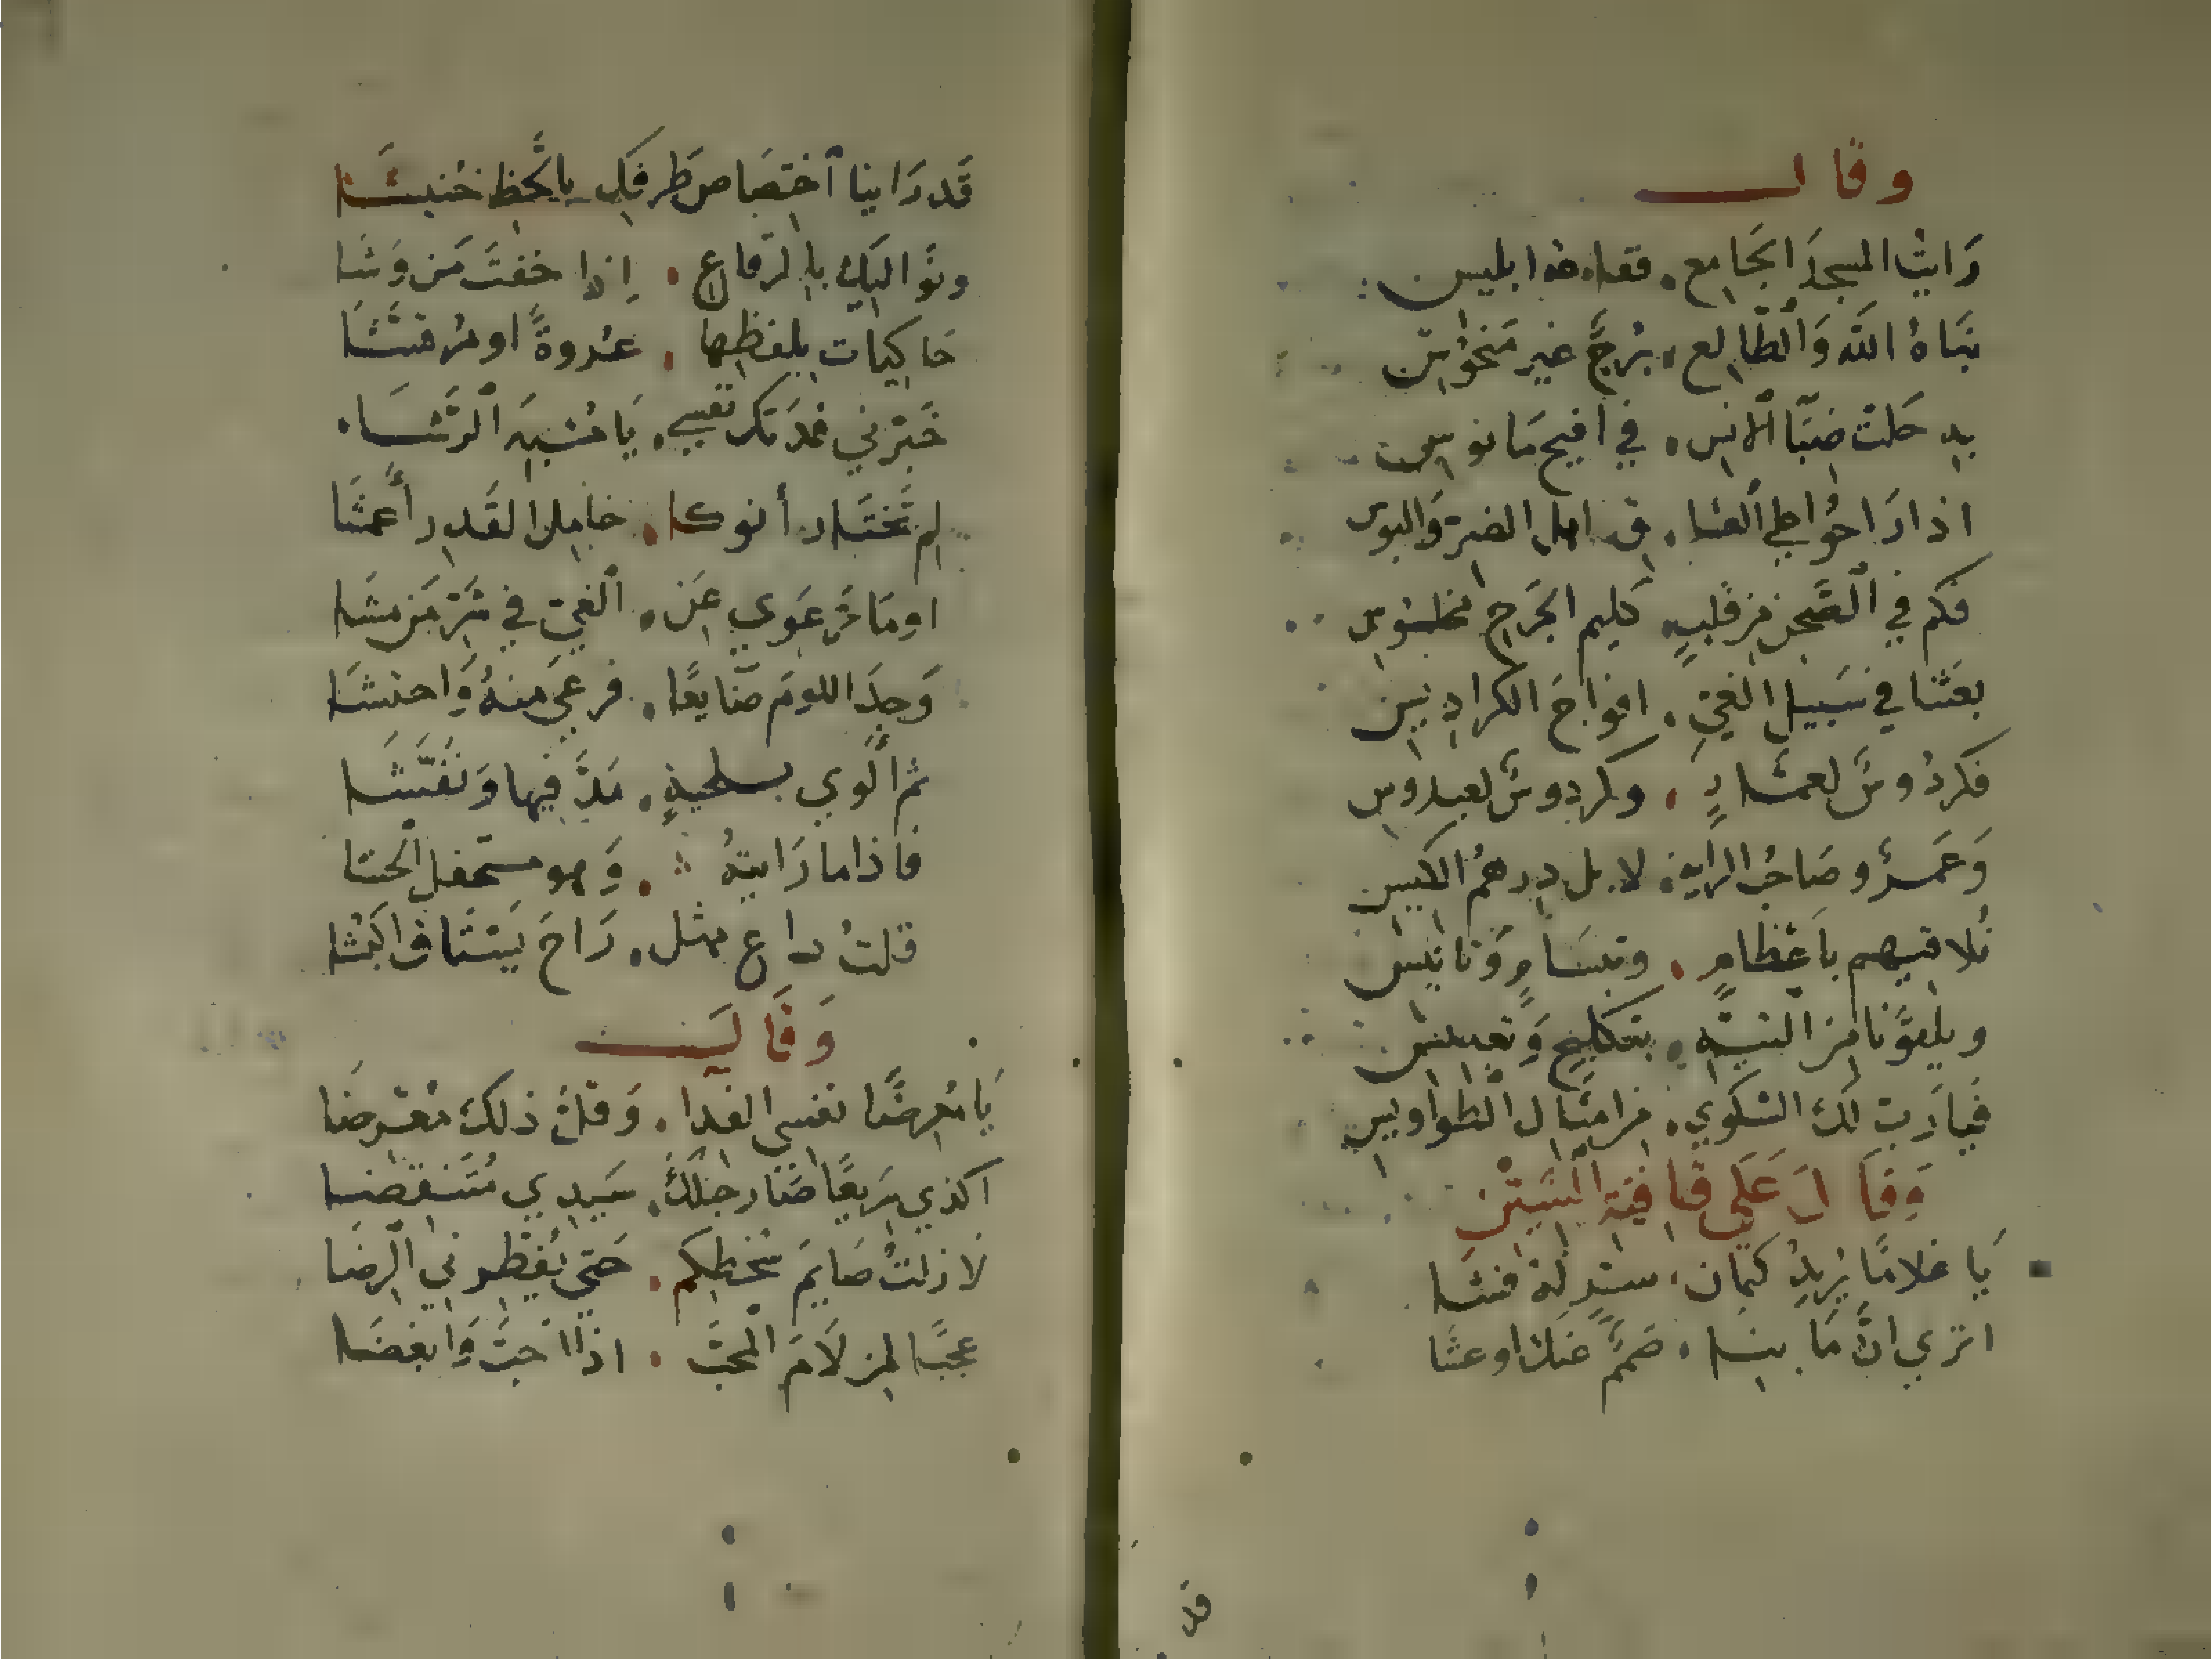 وقال
رَايتُ المسجدَ الجَامع . فقا ابليس
بَنَاهُ اللّه وَالطَّالِع . بُرجٌ غير مَنحُوس
بهِ حَلتْ ظِبَا الانس . في افيح مَانوس
اذا رَاحُوا العشا . اهل الضر وَالبوس
فكم في الصَّحنِ مِن قلبٍ كَلِيم الجَرحِ مخلوس
بعَثنا في سَبيل الغيّ . افواجَ الكراديس
فكردُوسٌ لعمّارٍ . وكردوسٌ لعبدوس
وَعَمرٌو صَاحبُ الرايةِ . لا بل درهمُ الكيس
نُلاقيهم باعْظامٍ . وتانيس
ويلقوّنا مِن التيهِ . بتكليحٍ وَتعبيس
فيارَبّ لك الشكوي . من امثال الطواويس
وَقالَ عَلَي قافيةِ الشين
يَا غلامًا يُريدُ كتمان . ستر له فشا
اتري انَّ مَا بنا . صَممٌ عنك او عشا
قد
قَد رَاينا اختصَاص طَرفك باللّحظ خنبشا
ونوَاليك بالرقاع . اِذا خفتَ مَن وَشا
حَاكيات بلفظها . عُروةً او مُرقشا
خَبّرني فَدَتكَ نفسي . يَا مُشبهَ الرشا .
لِم تختار أنوكا . خامِل القَدر أعمشا
او مَا تَرعَوي عَن . الغيّ في شرّ مَن مشا
وَجدَ اللومَ ضايعًا . فرعَي منهُ وَاحتشا
ثم ألوي بسلحةٍ . مَدَّ فيها وَنفّشا
فاذا ما رَايتهُ . وَهو مستحفل الحشا
قلتُ داع مثل . رَاحَ
وَقَالَ
يَا مُعرضًا نفسي الفدا . وَقلّ ذلك مُعرضا
اكذي سَريعًا صَار حبلكُ . سَيدي مُتنقضا
لا زلتُ صَايمَ سُخطكم . حَتّي يُفطرني الرضا
عجَبًا لمن لَامَ المحبّ . اذا احبّ وَابغضا